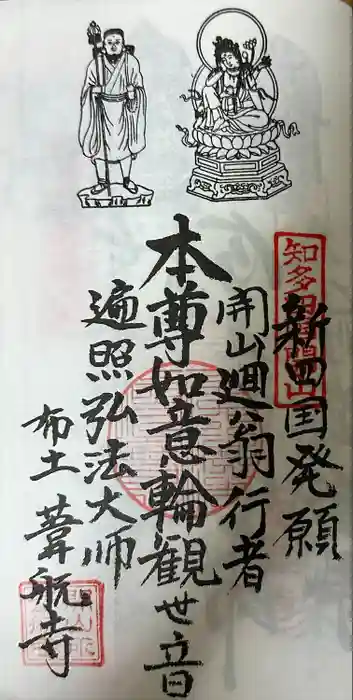 新四国発願
開山廻翁行者
本尊如意輪観世音
遍照弘法大師
布土 葦航寺